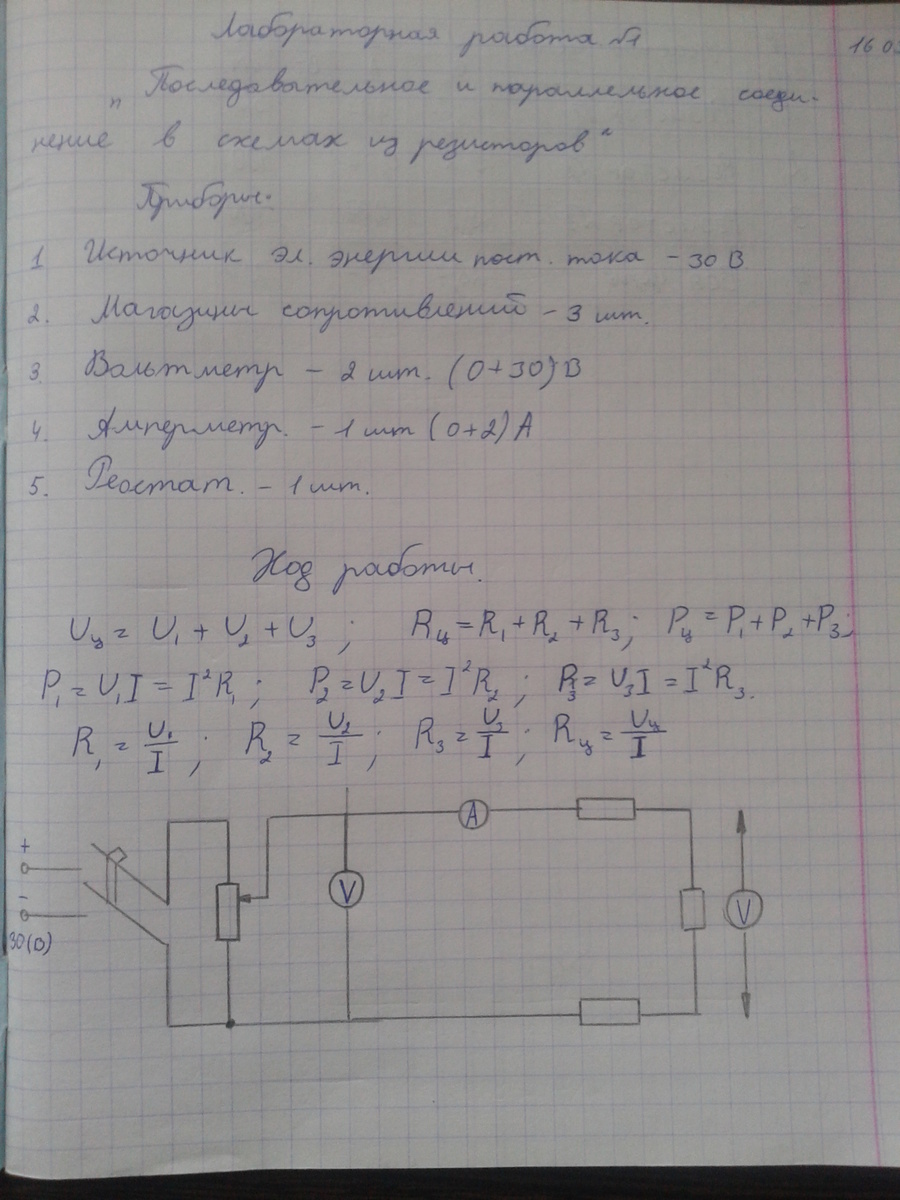 Лабораторная работа №1
16 03
„Последовательное и параллельное соеди-
нение в схемах из резисторов“
Приборы:
1 Источник эл. энергии пост. тока – 30 В
2. Магазины сопротивлений – 3 шт.
3. Вольтметр – 2 шт. (0÷30)В
4. Амперметр. – 1 шт (0÷2)А
5. Реостат. – 1 шт.
Ход работы.
Uц = U₁ + U₂ + U₃ ; Rц = R₁ + R₂ + R₃; Pц = P₁ + P₂ + P₃;
P₁ = U₁I = I²R₁; P₂ = U₂I = I²R₂; P₃ = U₃I = I²R₃.
R₁ = U₁/I; R₂ = U₂/I; R₃ = U₃/I; Rц = Uц/I
A
+
V
V
-
30(В)